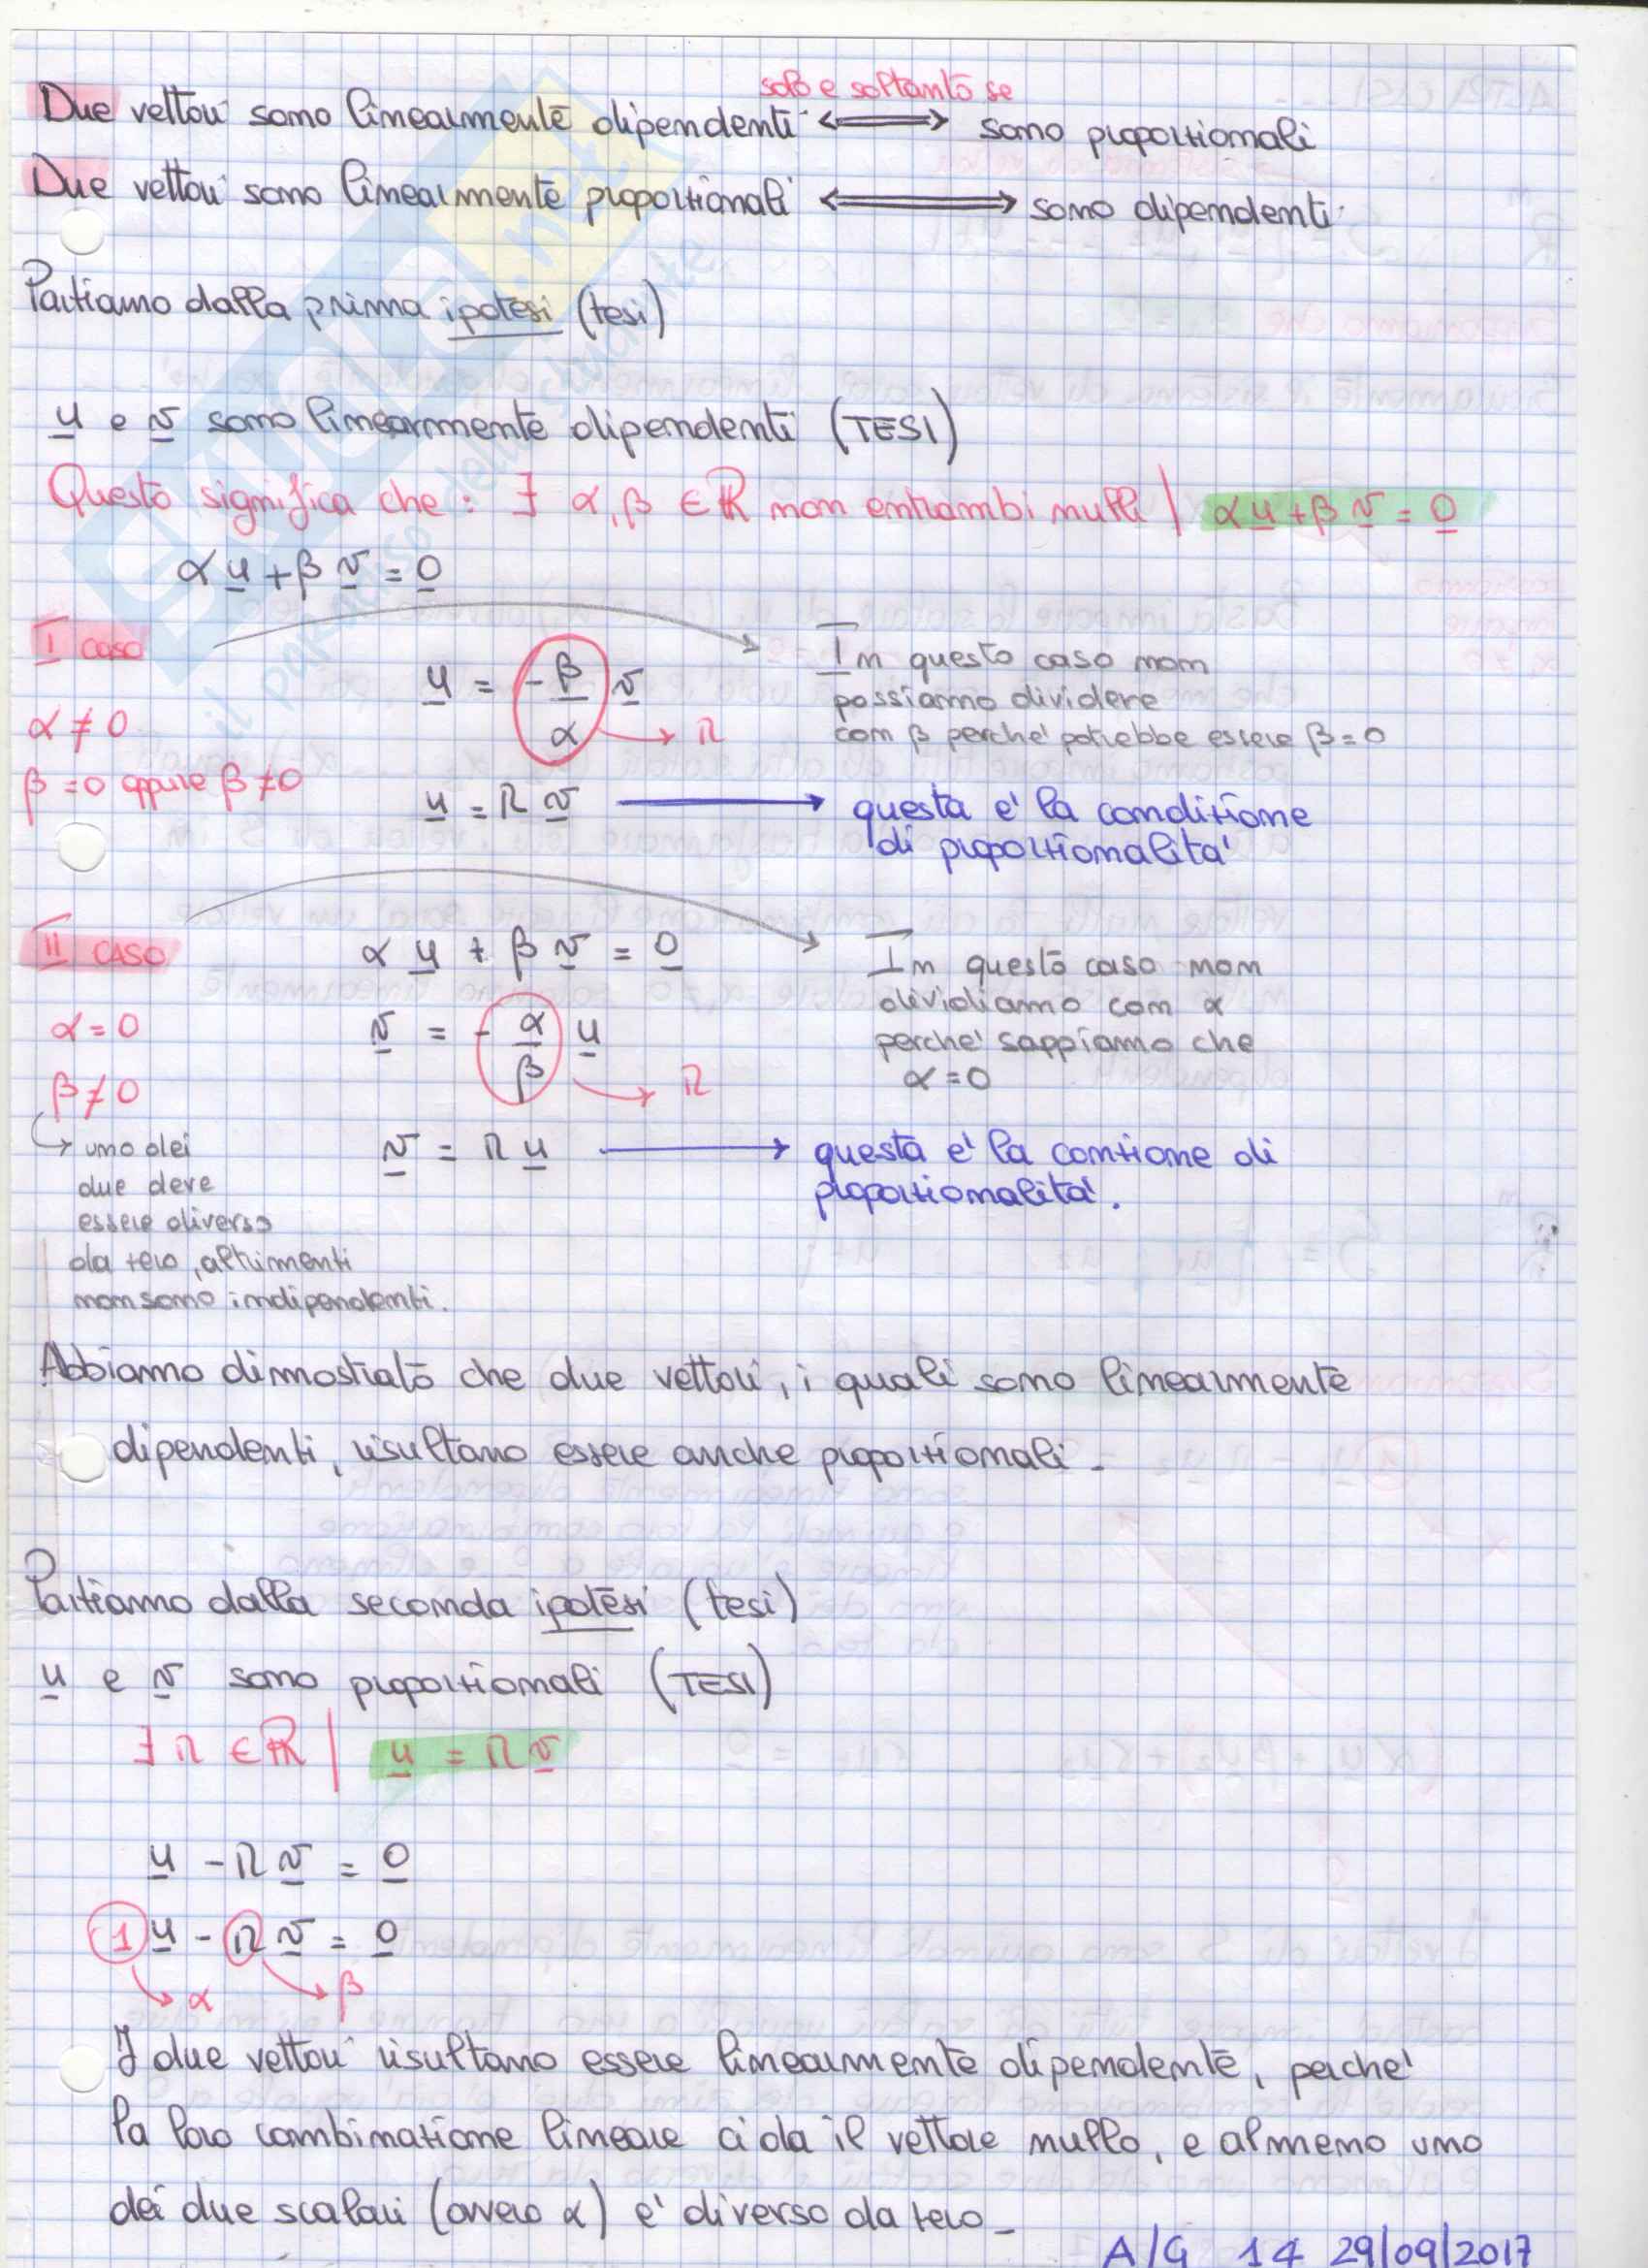 solo e soltanto se
Due vettori sono linearmente dipendenti ⟺ sono proporzionali
Due vettori sono linearmente proporzionali ⟺ sono dipendenti
Partiamo dalla prima ipotesi (tesi)
u e v sono linearmente dipendenti (TESI)
Questo significa che: ∃ α, β ∈ ℝ non entrambi nulli | αu + βv = 0
αu + βv = 0
I caso
α ≠ 0
β = 0 oppure β ≠ 0
u = -β/α v → r
u = r v → questa e' la condizione
di proporzionalita'
In questo caso non
possiamo dividere
con β perche' potrebbe essere β = 0
II CASO
α = 0
β ≠ 0
↳ uno dei
due deve
essere diverso
da zero, altrimenti
non sono indipendenti.
αu + βv = 0
v = -α/β u → r
v = r u → questa e' la conzione di
proporzionalita'.
In questo caso non
dividiamo con α
perche' sappiamo che
α = 0
Abbiamo dimostrato che due vettori, i quali sono linearmente
dipendenti, risultano essere anche proporzionali.
Partiamo dalla seconda ipotesi (tesi)
u e v sono proporzionali (TESI)
∃ r ∈ ℝ | u = r v
u - r v = 0
1 u - r v = 0
→ α → β
I due vettori risultano essere linearmente dipendente, perche'
la loro combinazione lineare ci da il vettore nullo, e almeno uno
dei due scalari (ovvero α) e' diverso da zero_
A/G 14 29/09/2017